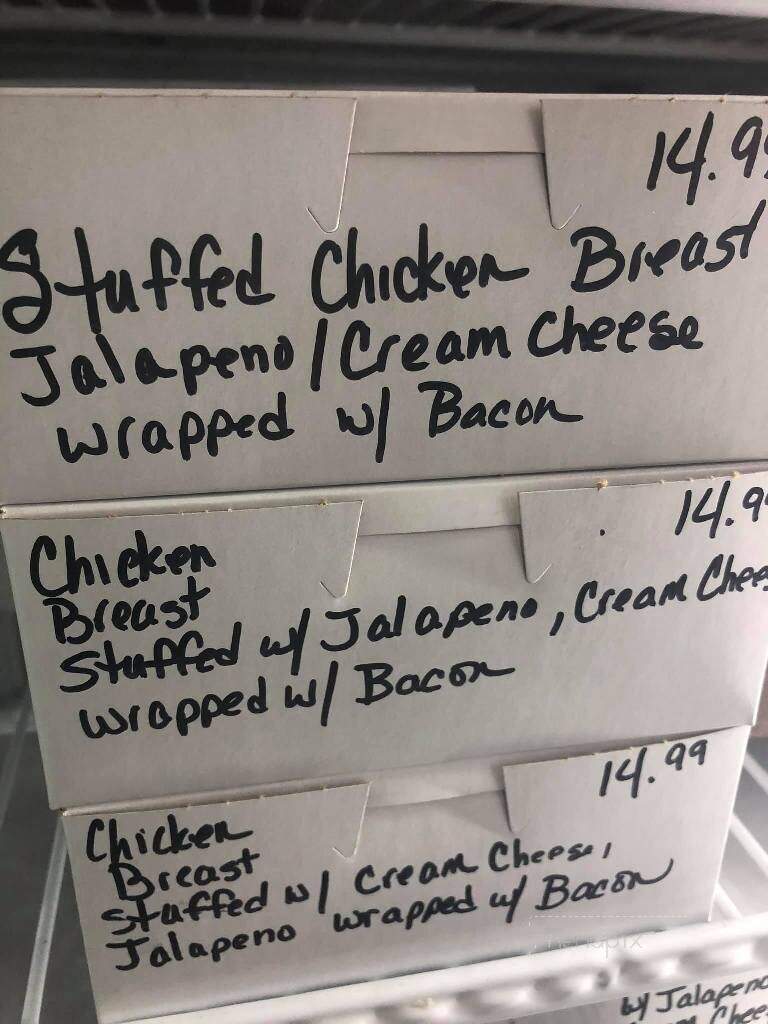 14.99
Stuffed Chicken Breast
Jalapeno/Cream Cheese
wrapped w/ Bacon
14.9
Chicken
Breast
Stuffed w/ Jalapeno, Cream Chees
wrapped w/ Bacon
14.99
Chicken
Breast
Stuffed w/ Cream Cheese,
Jalapeno wrapped w/ Bacon
menupix
w/ Jalapeno
m Chee